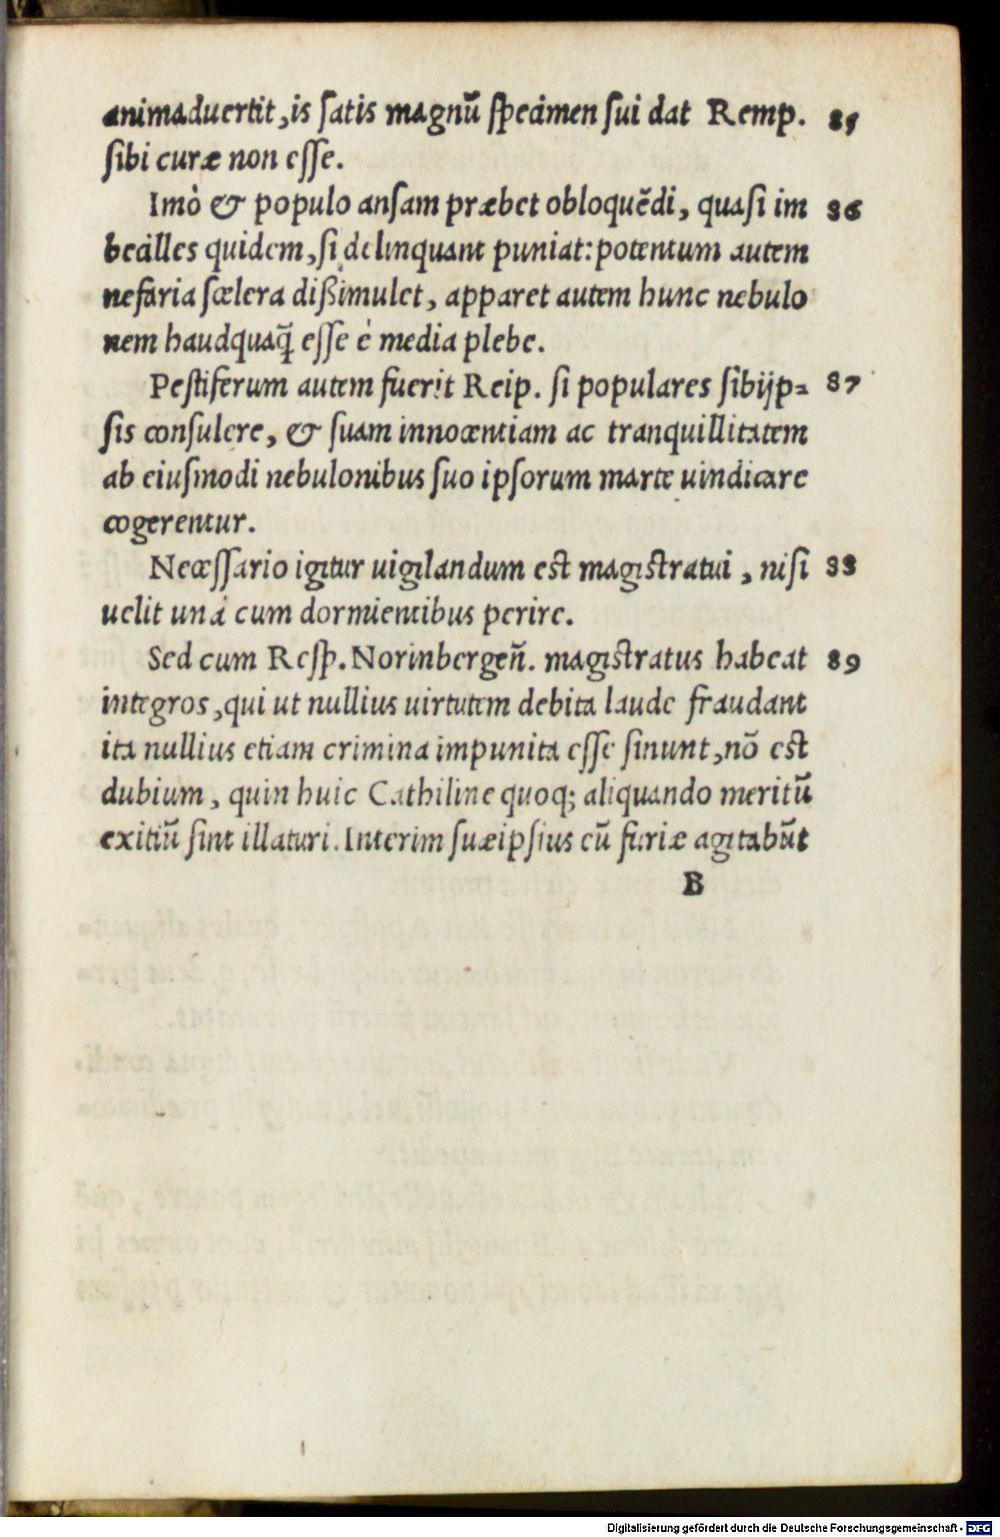 animaduertit, is ſatis magnũ ſpecimen ſui dat Remp. 85
ſibi curæ non eſſe.
Imò & populo anſam præbet obloquẽdi, quaſi im 86
becilles quidem, ſi delinquant puniat: potentum autem
nefaria ſcelera dißimulet, apparet autem hunc nebulo
nem haudquaq̃ eſſe è media plebe.
Peſtiferum autem fuerit Reip. ſi populares ſibijp- 87
ſis conſulere, & ſuam innocentiam ac tranquillitatem
ab eiuſmodi nebulonibus ſuo ipſorum marte uindicare
cogerentur.
Neceſſario igitur uigilandum eſt magiſtratui, niſi 88
uelit unà cum dormientibus perire.
Sed cum Reſp. Norinbergeñ. magiſtratus habeat 89
integros, qui ut nullius uirtutem debita laude fraudant
ita nullius etiam crimina impunita eſſe ſinunt, nõ eſt
dubium, quin huic Cathiline quoq; aliquando meritũ
exitiũ ſint illaturi. Interim ſuæipſius cũ furiæ agitabũt
B
Digitalisierung gefördert durch die Deutsche Forschungsgemeinschaft - DFG